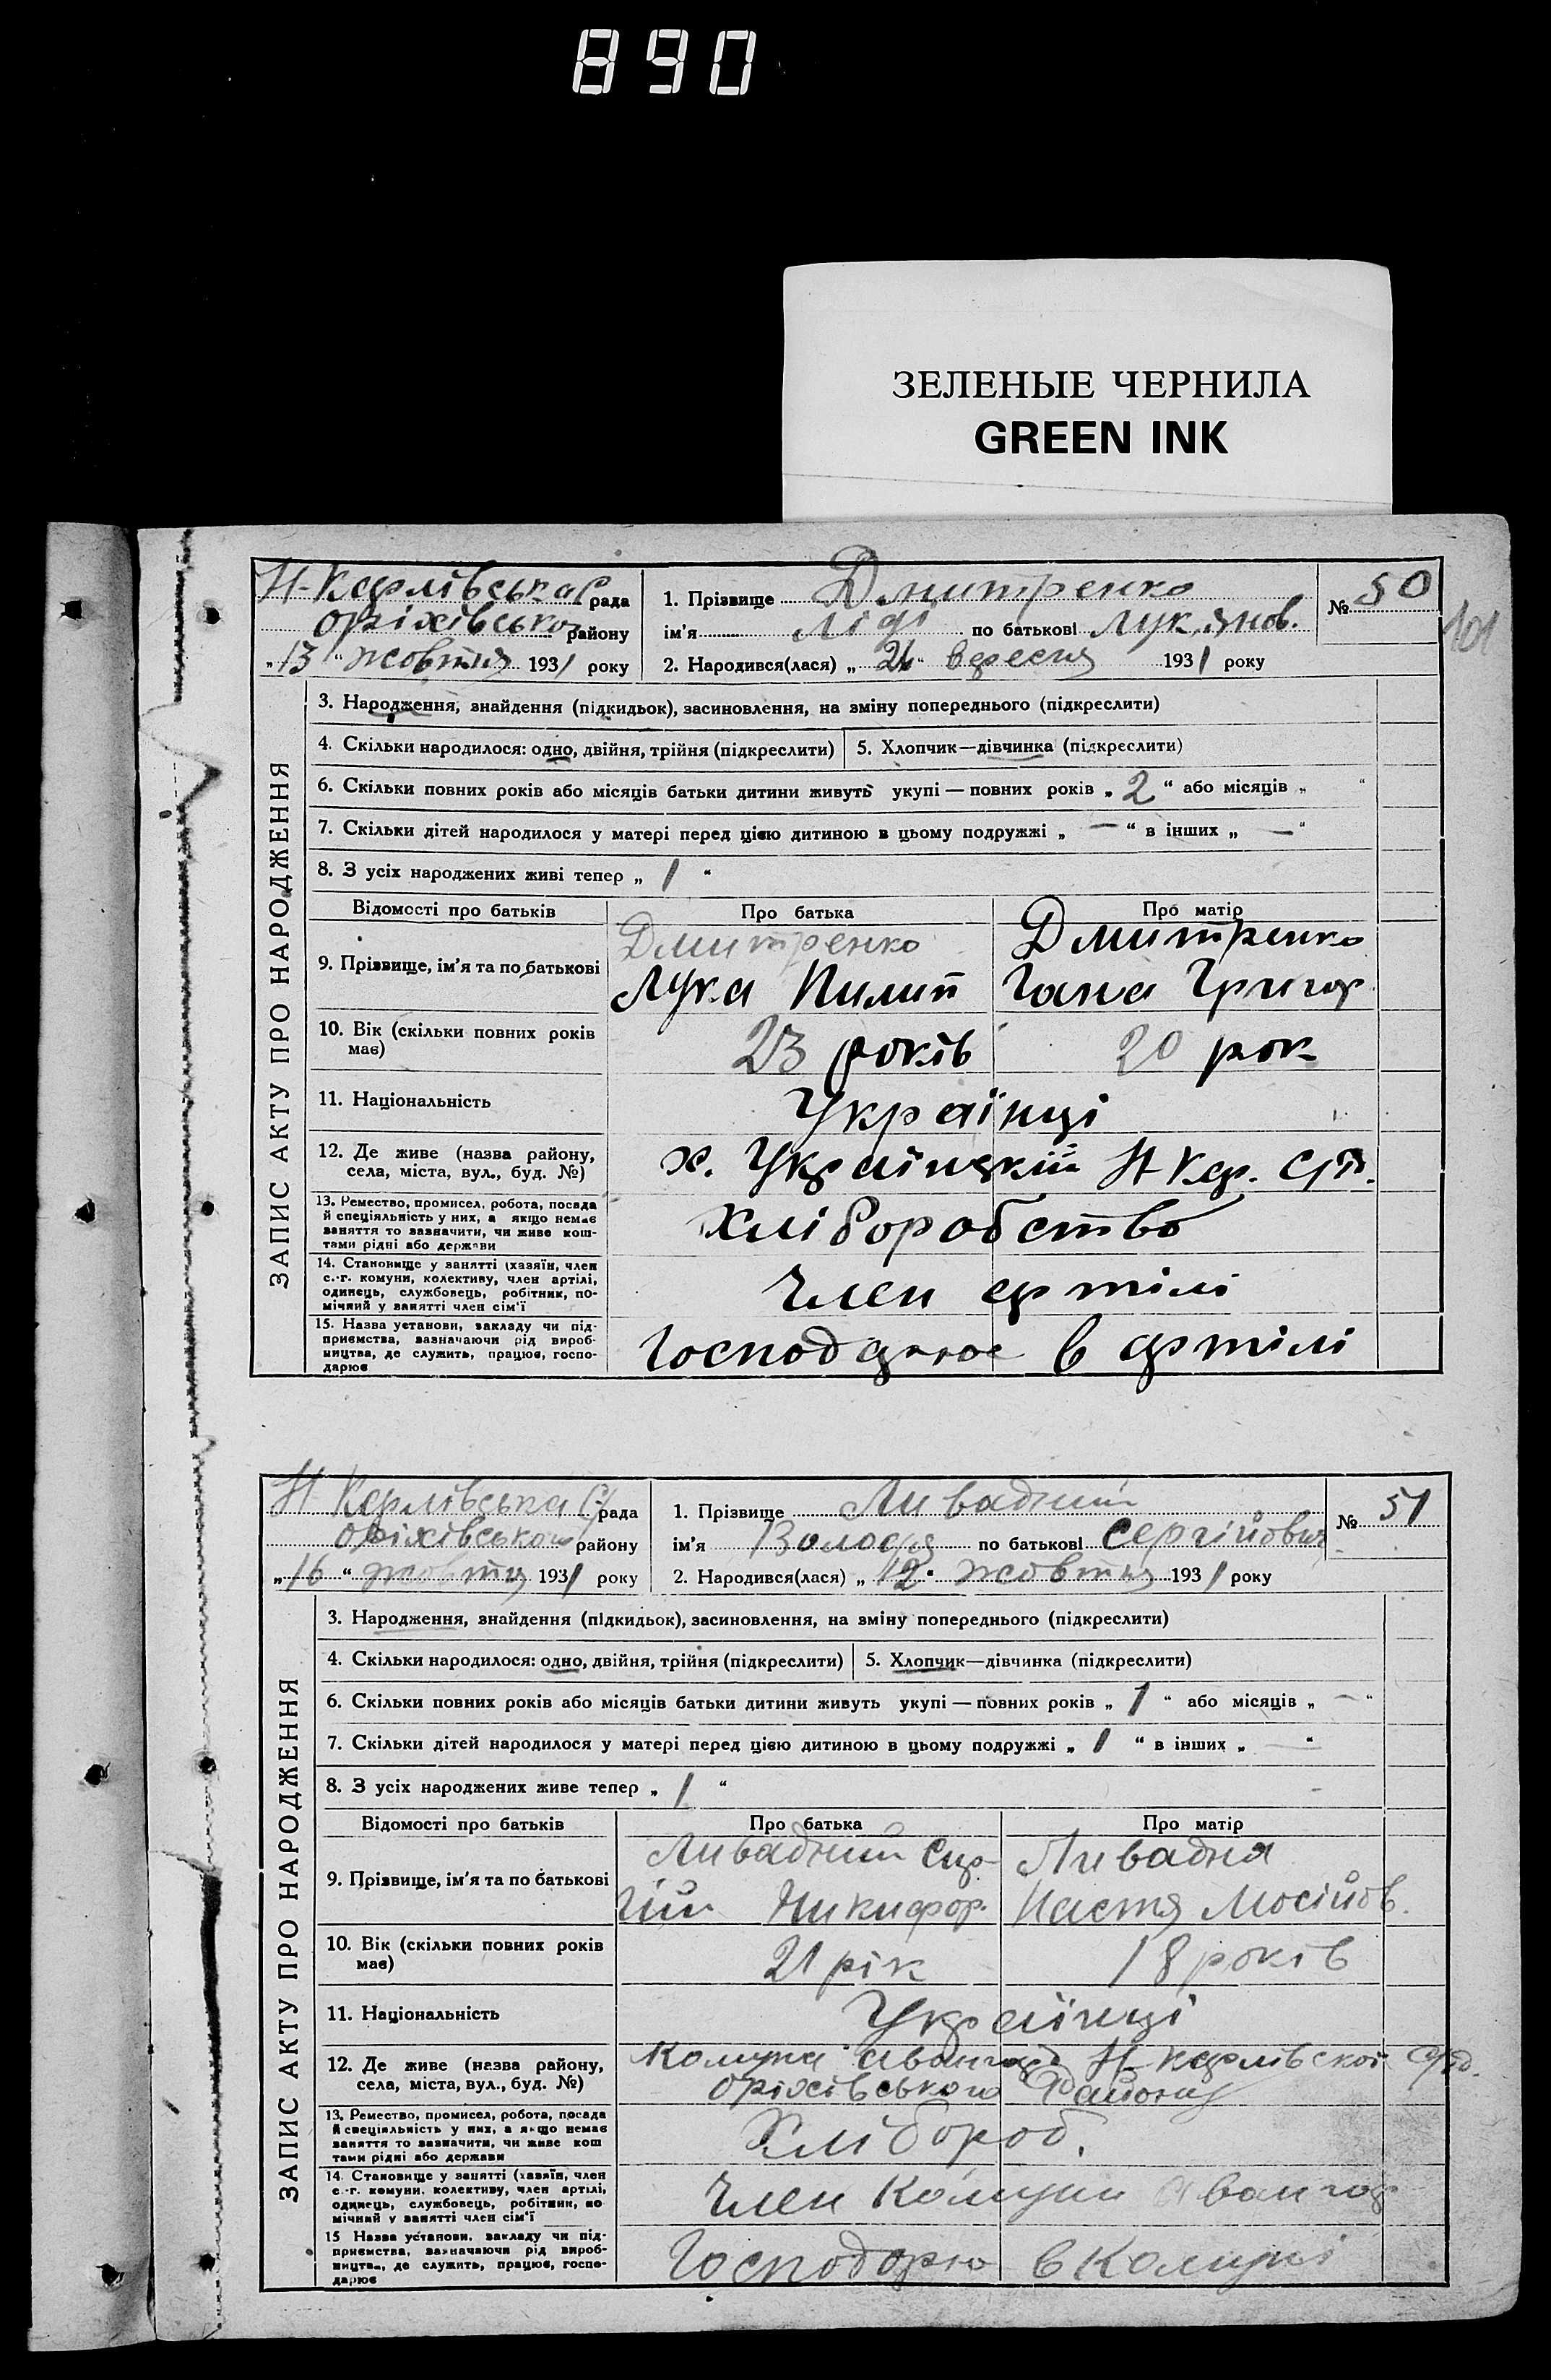 890
ЗЕЛЕНЫЕ ЧЕРНИЛА
GREEN INK
Н-Карлівська С рада
Оріхівсько району
„13“ жовтня 1931 року
1. Прізвище Дмитренко
ім'я Ліді по батькові Лук,янов.
2. Народився(лася) „ “ вересня 1931 року
№ 50
101
ЗАПИС АКТУ ПРО НАРОДЖЕННЯ
3. Народження, знайдення (підкидьок), засиновлення, на зміну попереднього (підкреслити)
4. Скільки народилося: одно, двійня, трійня (підкреслити) 5. Хлопчик—дівчинка (підкреслити)
6. Скільки повних років або місяців батьки дитини живуть укупі — повних років „ 2 “ або місяців „ “
7. Скільки дітей народилося у матері перед цією дитиною в цьому подружжі „ — “ в інших „ — “
8. З усіх народжених живі тепер „ 1 “
Відомості про батьків Про батька Про матір
9. Прізвище, ім'я та по батькові
Дмитренко
Лука Пилип
Дмитренко
Гана Григор
10. Вік (скільки повних років має) 23 років 20 рок
11. Національність Українці
12. Де живе (назва району, села, міста, вул., буд. №) х. Український Н Кар. С/р.
13. Ремество, промисел, робота, посада
й спеціяльність у них, а якщо немає
заняття то зазначити, чи живе кош-
тами рідні або держави
Хліборобство
14. Становище у занятті (хазяїн, член
с.-г. комуни, колективу, член артілі,
одинець, службовець, робітник, по-
мічний у занятті член сім'ї
Член артілі
15. Назва установи, закладу чи під-
приємства, зазначаючи рід вироб-
ництва, де служить, працює, госпо-
дарює
Господарює в артілі
Н Карлівська С/рада
Оріхівського району
„16“ жовтня 1931 року
1. Прізвище Ливадний
ім'я Володя по батькові Сергійович
2. Народився(лася) „12“ жовтня 1931 року
№ 51
ЗАПИС АКТУ ПРО НАРОДЖЕННЯ
3. Народження, знайдення (підкидьок), засиновлення, на зміну попереднього (підкреслити)
4. Скільки народилося: одно, двійня, трійня (підкреслити) 5. Хлопчик—дівчинка (підкреслити)
6. Скільки повних років або місяців батьки дитини живуть укупі — повних років „ 1 “ або місяців „ — “
7. Скільки дітей народилося у матері перед цією дитиною в цьому подружжі „ 1 “ в інших „ — “
8. З усіх народжених живе тепер „ 1 “
Відомості про батьків Про батька Про матір
9. Прізвище, ім'я та по батькові
Ливадний Сер-
гій Никифор.
Ливадня
Настя Мосійов.
10. Вік (скільки повних років має) 21 рік 18 років
11. Національність Українці
12. Де живе (назва району, села, міста, вул., буд. №)
Комуна авангард Н-карлівскої с/рд.
Оріхівського Району
13. Ремество, промисел, робота, посада
й спеціяльність у них, а якщо немає
заняття то зазначити, чи живе кош
тами рідні або держави
Хлібороб.
14. Становище у занятті (хазяїн, член
с.-г. комуни, колективу, член артілі,
одинець, службовець, робітник, по
мічний у занятті член сім'ї
Член Комуни авангар
15 Назва установи, закладу чи під-
приємства, зазначаючи рід вироб-
ництва, де служить, працює, госпо-
дарює
Господарю в Комуні